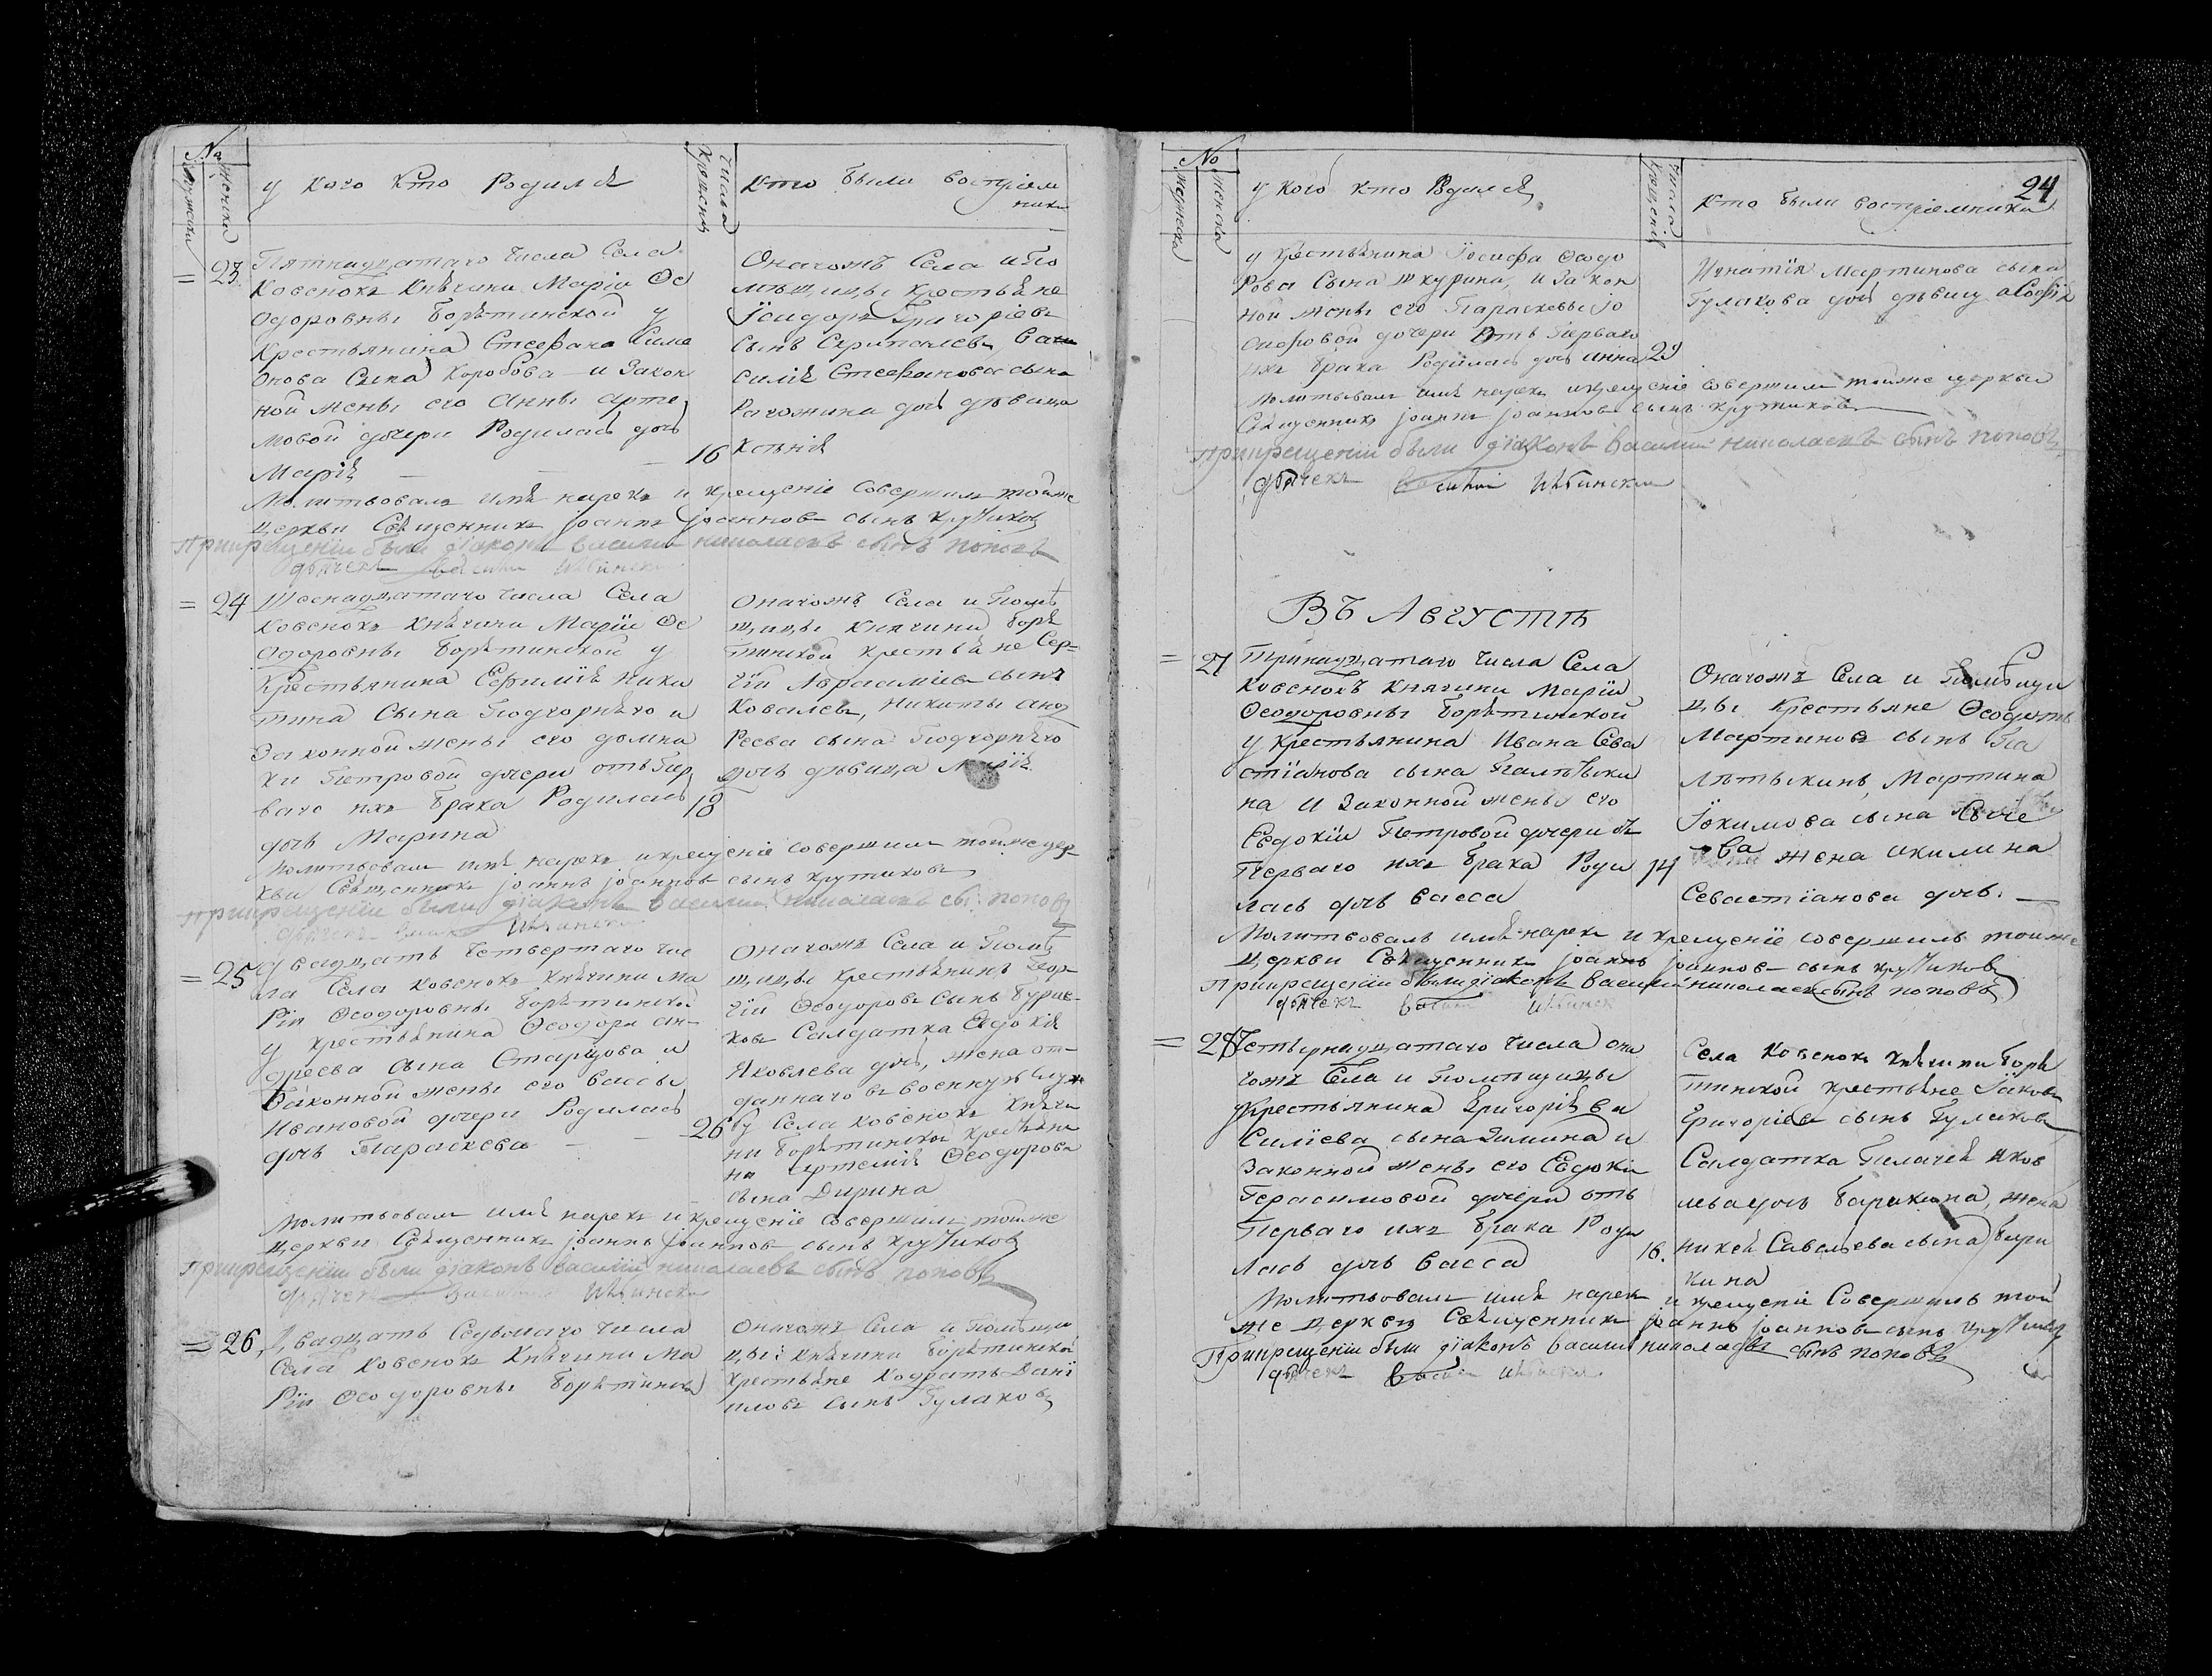 №
мужеска
женска
у кого кто Родился
числа
крещенія
кто были воспріем
ники
= 23.
Пятнадцатаго числа Села
Ковенокъ Княгини Маріи Ѳе
одоровны Борятинской у
Крестьянина Стефана Симе
онова Сына Коробова и Закон
ной жены его Анны арте
мовой дочери Родилась дочь
Марія
16
Онагожъ Села и По
мѣщицы крестьяне
Ісидоръ Григоріевъ
Сынъ Скрипалевъ, Ва
силія Стефанова сына
Рагожина дочь дѣвица
Ксѣнія
Молитвовалъ имя нарекъ и крещеніе совершилъ тойже
церкви Священникъ Іоаннъ Іоанновъ сынъ Крутиковъ
При крещеніи были діаконъ василій николаевъ сынъ поповъ
дьячекъ
= 24
Шеснадцатаго числа Села
Ковенокъ Княгини Маріи Ѳе
одоровны Борятинской у
Крестьянина Ефимія Ники
тина Сына Подгорняго и
Законной жены его домни
ки Петровой дочери отъ Пер
ваго ихъ брака Родилась
дочь Марина
18
Онагожъ Села и Помѣ
щицы Княгини Боря
тинской крестьяне Сер=
гій Аврааміевъ сынъ
Ковалевъ, Никиты Анд
Реева сына Подгорняго
дочь дѣвица Марія
Молитвовалъ имя нарекъ и крещеніе совершилъ тойже цер
кви Священникъ Іоаннъ Іоанновъ сынъ Крутиковъ
При крещеніи были діаконъ василій николаевъ сы: поповъ
дьячекъ
= 25
двадцать четвертаго чис
ла Села Ковенокъ Княгини Ма
Ріи Ѳеодоровны Борятинской
у крестьянина Ѳеодора Ан-
дреева сына Старцова и
Законной жены его Вассы
Ивановой дочери Родилась
дочь Параскева
26
Онагожъ Села и Помѣ
щицы крестьянинъ Геор-
гій Ѳеодоровъ Сынъ
Салдатка Евдокія
Яковлева дочь, жена от-
даннаго въ военную служ
бу Села Ковенокъ Княги
ни Борятинской крестьяни
на Артемія Ѳеодорова
сына Дирина
Молитвовалъ имя нарекъ и крещеніе совершилъ тойже
церкви Священникъ Іоаннъ Іоанновъ сынъ Крутиковъ
При крещеніи были діаконъ василій николаевъ сынъ поповъ
дьячекъ
= 26,
Двадцать Седьмаго числа
Села Ковенокъ Княгини Ма
Ріи Ѳеодоровны Борятинской
Онагожъ Села и Помѣщи
цы: Княгини Борятинской
крестьяне Кодратъ Дані
иловъ сынъ Гулаковъ
№
мужеска
женска
у кого кто Родился
числа
крещенія
24
кто были воспріемники
у крестьянина Іосифа Ѳеодо
Рова Сына Шкурина, и Закон
ной жены его Параскевы Іо
сифовой дочери Отъ Перваго
ихъ брака Родилась дочь Анна
29
Игнатія Мартинова сына
Гулакова дочь дѣвица Софія
Молитвовалъ имя нарекъ и крещеніе совершилъ тойже церкви
Священникъ Іоаннъ Іоанновъ сынъ Крутиковъ
При крещеніи были діаконъ Василій николаевъ сынъ поповъ
дьячекъ
Въ Августѣ
= 27
Тринадцатаго числа Села
Ковенокъ Княгини Маріи
Ѳеодоровны Борятинской
у крестьянина Ивана Сева
стіанова сына
на и Законной жены его
Евдокіи Петровой дочери отъ
Перваго ихъ брака Роди
лась дочь Васса
14
Онагожъ Села и Помѣщи
цы Крестьяне Ѳеодотъ
Мартиновъ сынъ
Мартина
Іокимова сына
жена Акилина
Севастіанова дочь.
Молитвовалъ имя нарекъ и крещеніе совершилъ тойже
церкви Священникъ Іоаннъ Іоанновъ сынъ Крутиковъ
При крещеніи были діаконъ василій николаевъ сынъ поповъ
дьячекъ
= 28
Четырнадцатаго числа она
гожъ Села и Помѣщицы
у Крестьянина Григорія Ва
силіева сына Зимина и
Законной жены его Евдокіи
Герасимовой дочери отъ
Перваго ихъ брака Роди
лась дочь Васса
16.
Села Ковенокъ Княгини Боря
тинской крестьяне Іаковъ
Григоріевъ сынъ Гулаковъ
Салдатка Пелагея Яков
лева дочь жена
Савельева сына
кина
Молитвовалъ имя нарекъ и крещеніе Совершилъ той
же церкви Священникъ Іоаннъ Іоанновъ сынъ Крутиковъ
При крещеніи были діаконъ василій николаевъ сынъ поповъ
дьячекъ